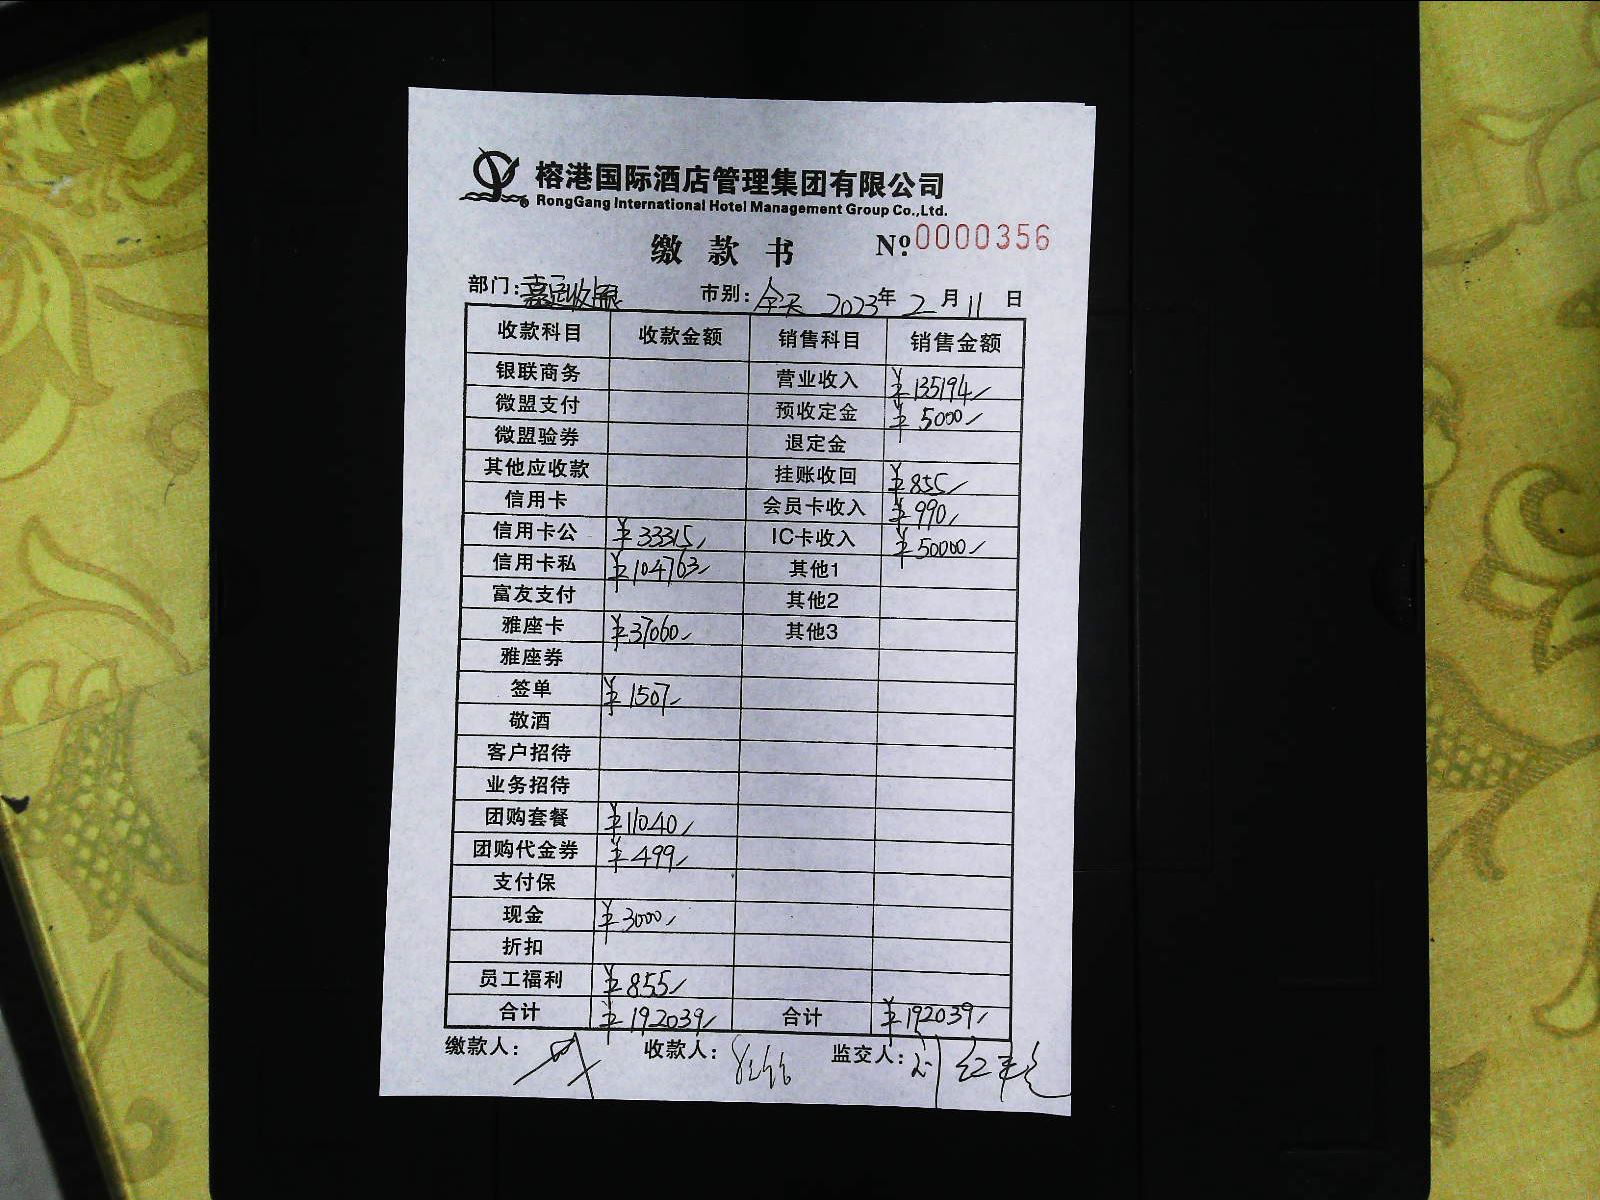 榕港国际酒店管理集团有限公司
RongGang International Hotel Management Group Co.,Ltd.
缴款书 №:0000356
部门:嘉足收银 市别:全天 2023年2月11日
收款科目 收款金额 销售科目 销售金额
银联商务 营业收入 ¥135194
微盟支付 预收定金 ¥5000
微盟验券 退定金
其他应收款 挂账收回 ¥855
信用卡 会员卡收入 ¥990
信用卡公 ¥33315 IC卡收入 ¥50000
信用卡私 ¥104763 其他1
富友支付 其他2
雅座卡 ¥37060 其他3
雅座券
签单 ¥1507
敬酒
客户招待
业务招待
团购套餐 ¥11040
团购代金券 ¥499
支付保
现金 ¥3000
折扣
员工福利 ¥855
合计 ¥192039 合计 ¥192039
缴款人: 收款人: 监交人: